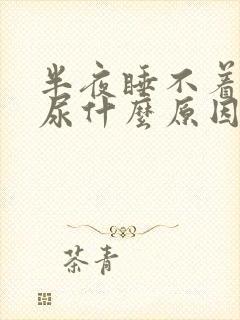 半夜睡不着
尿什麼原因
茶青